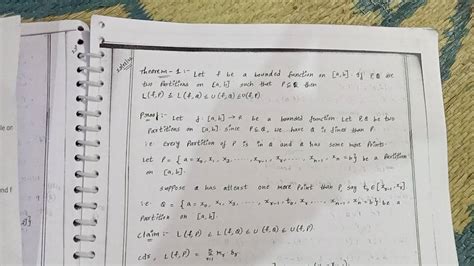 Theorem-1:- Let f be a bounded function on [a,b]. If P,Q are
two Partitions on [a,b] such that P⊆Q then
L(f,P) ≤ L(f,Q) ≤ U(f,Q) ≤ U(f,P).
Proof:- Let f:[a,b]→R be a bounded function Let P,Q be two
Partitions on [a,b] since P⊆Q, we have Q is finer than P.
i.e every Partition of P is in Q and Q has some more Points.
Let P = {a=x₀, x₁, x₂, ..., xᵣ₋₁, xᵣ, ..., xₙ₋₁, xₙ=b} be a Partition
on [a,b].
suppose Q has atleast one more Point than P, say tᵣ∈[xᵣ₋₁, xᵣ]
i.e Q = {a=x₀, x₁, x₂, ..., xᵣ₋₁, tᵣ, xᵣ, ..., xₙ₋₁, xₙ=b} be a
Partition on [a,b].
claim:- L(f,P) ≤ L(f,Q) ≤ U(f,Q) ≤ U(f,P).
cdr, L(f,P) = Σ mᵣ δᵣ